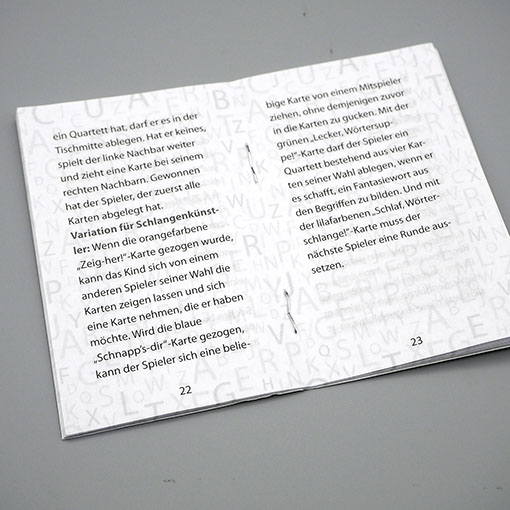 ein Quartett hat, darf er es in der
Tischmitte ablegen. Hat er keines,
spielt der linke Nachbar weiter
und zieht eine Karte bei seinem
rechten Nachbarn. Gewonnen
hat der Spieler, der zuerst alle
Karten abgelegt hat.
Variation für Schlangenkünst-
ler: Wenn die orangefarbene
„Zeig-her!“-Karte gezogen wurde,
kann das Kind sich von einem
anderen Spieler seiner Wahl die
Karten zeigen lassen und sich
eine Karte nehmen, die er haben
möchte. Wird die blaue
„Schnapp’s-dir“-Karte gezogen,
kann der Spieler sich eine belie-
22
bige Karte von einem Mitspieler
ziehen, ohne demjenigen zuvor
in die Karten zu gucken. Mit der
grünen „Lecker, Wörtersup-
pe!“-Karte darf der Spieler ein
Quartett bestehend aus vier Kar-
ten seiner Wahl ablegen, wenn er
es schafft, ein Fantasiewort aus
den Begriffen zu bilden. Und mit
der lilafarbenen „Schlaf, Wörter-
schlange!“-Karte muss der
nächste Spieler eine Runde aus-
setzen.
23